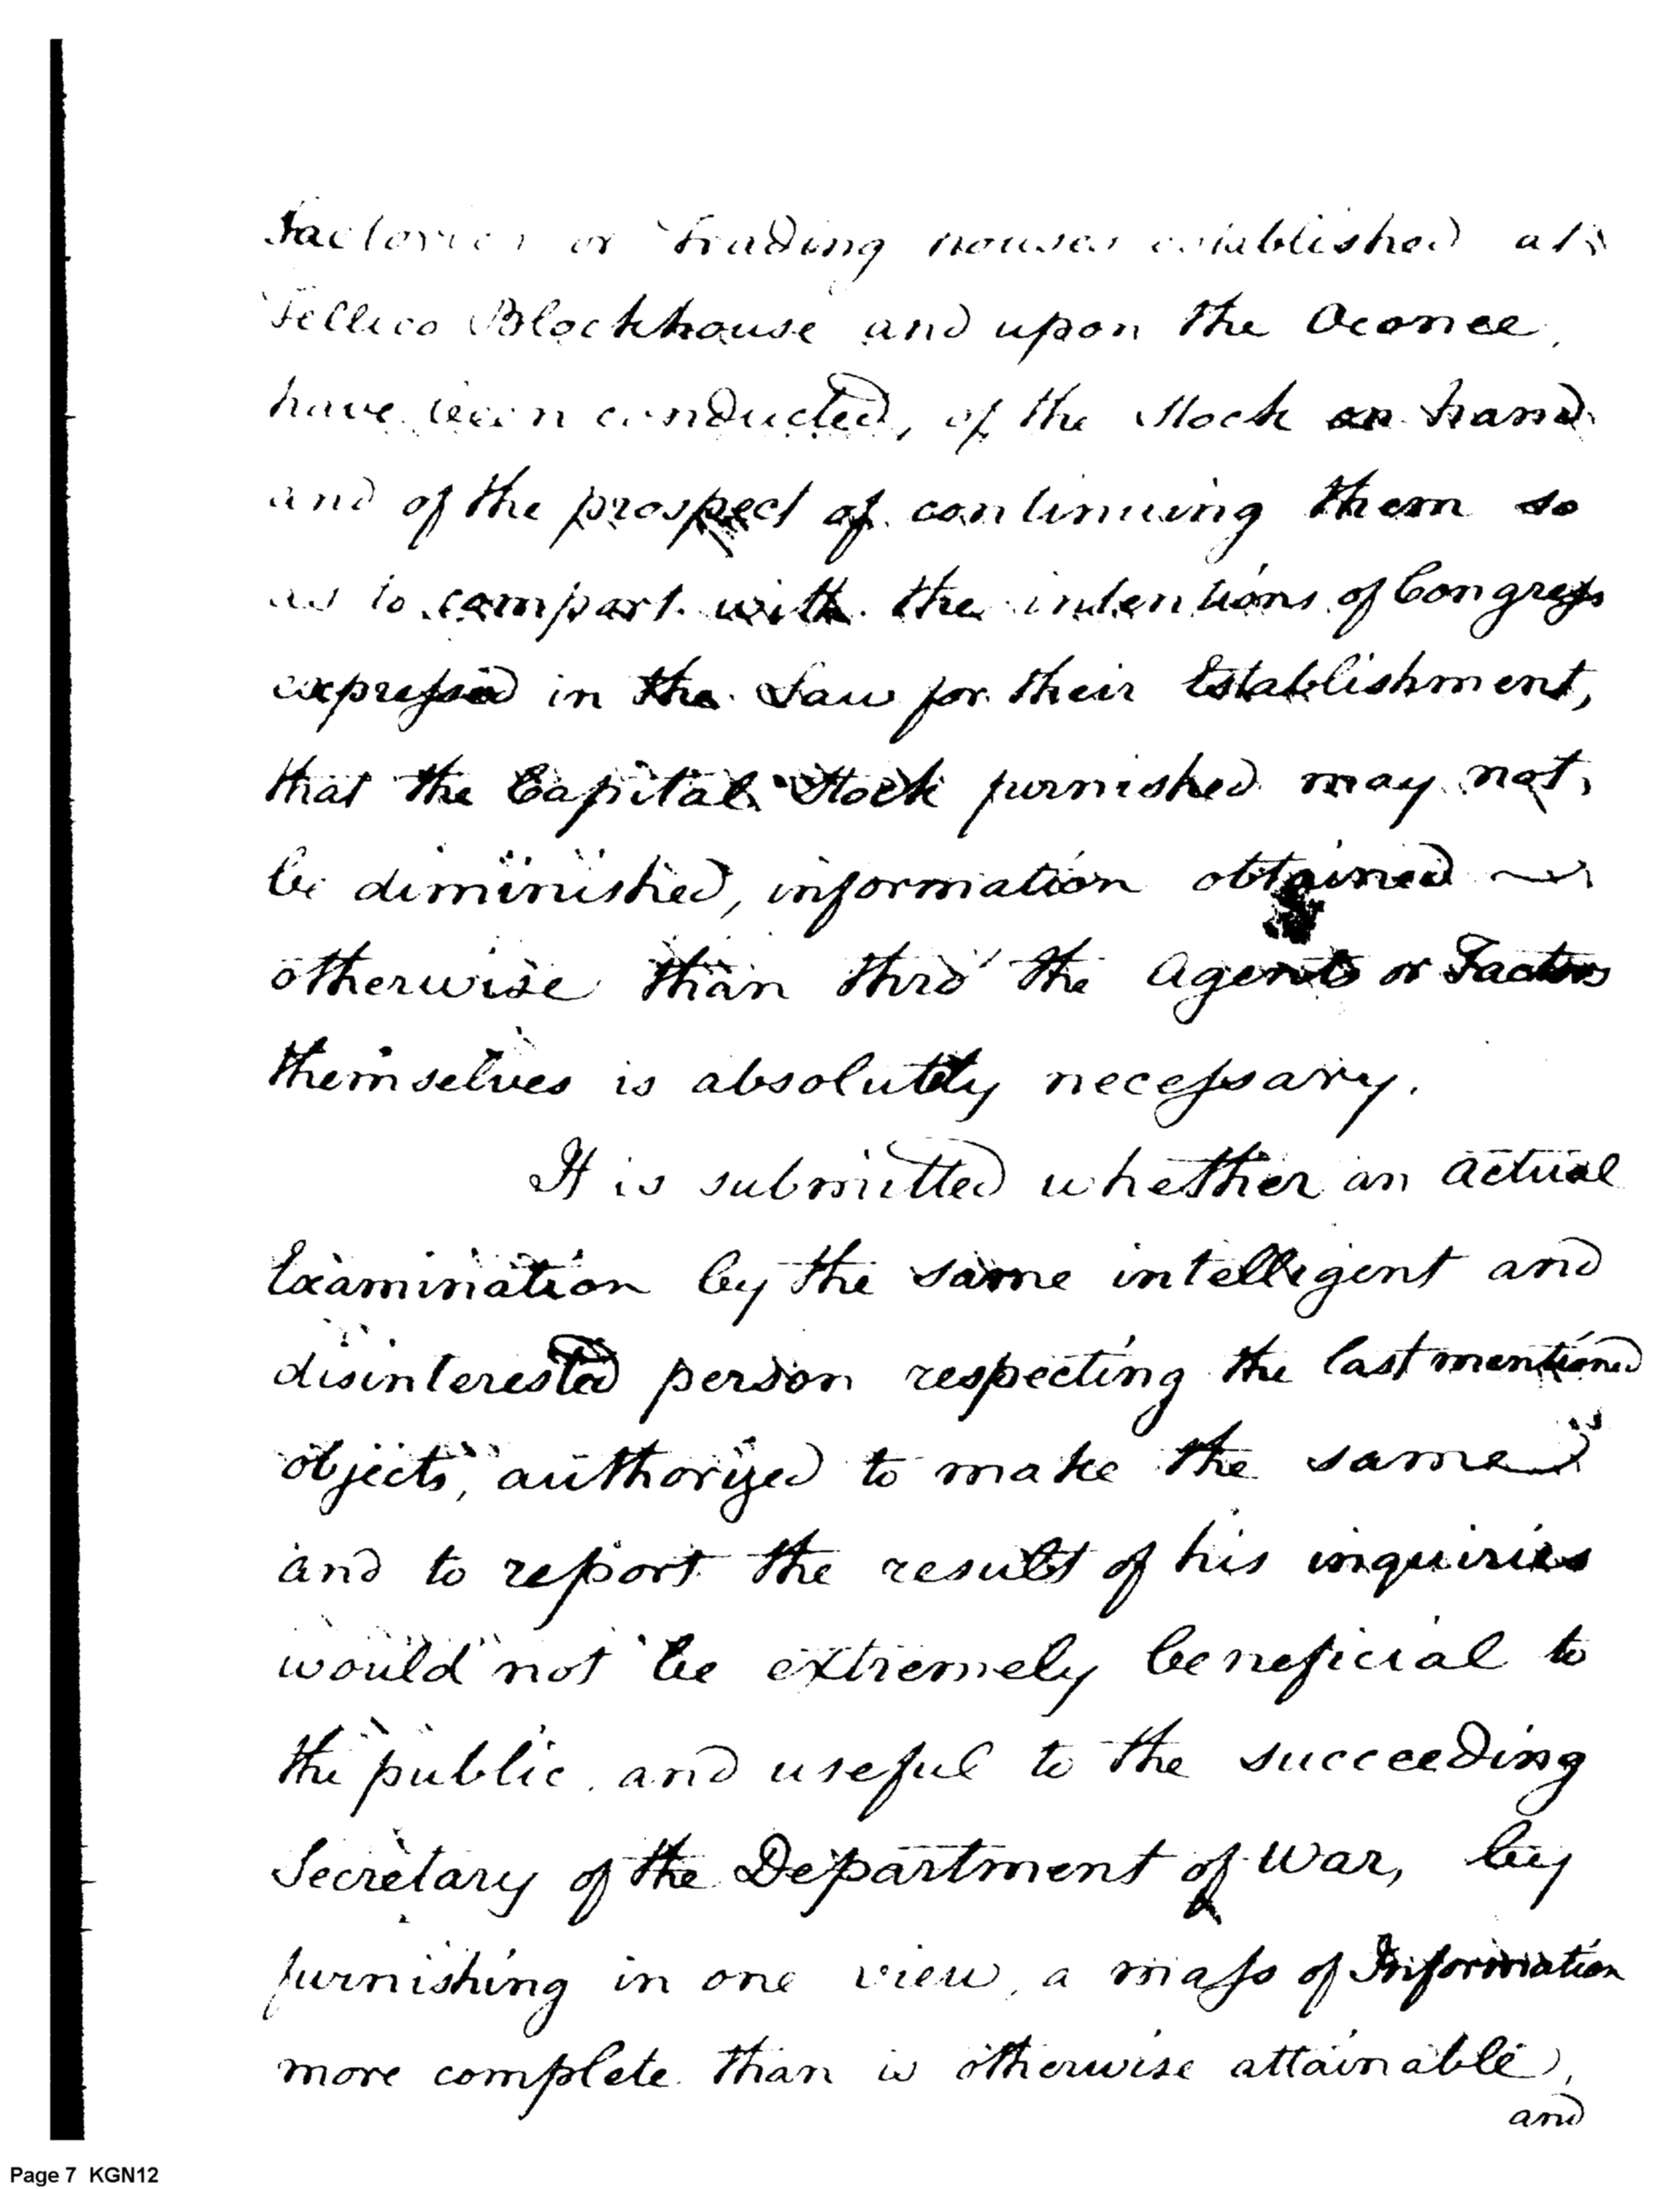 Factories or Trading houses established at
Tellico Blockhouse and upon the Oconee,
have been conducted, of the Stock on hand
and of the prospect of continuing them so
as to comport with the intentions of Congress
expressed in the Law for their Establishment,
that the Capital Stock furnished may not
be diminished, information obtained
otherwise than thro' the Agents or Factors
themselves is absolutely necessary.
It is submitted whether an actual
Examination by the same intelligent and
disinterested person respecting the last mentioned
objects, authorized to make the same
and to report the result of his inquiries
would not be extremely beneficial to
the public and useful to the succeeding
Secretary of the Department of War, by
furnishing in one view, a mass of Information
more complete than is otherwise attainable,
and
Page 7 KGN12